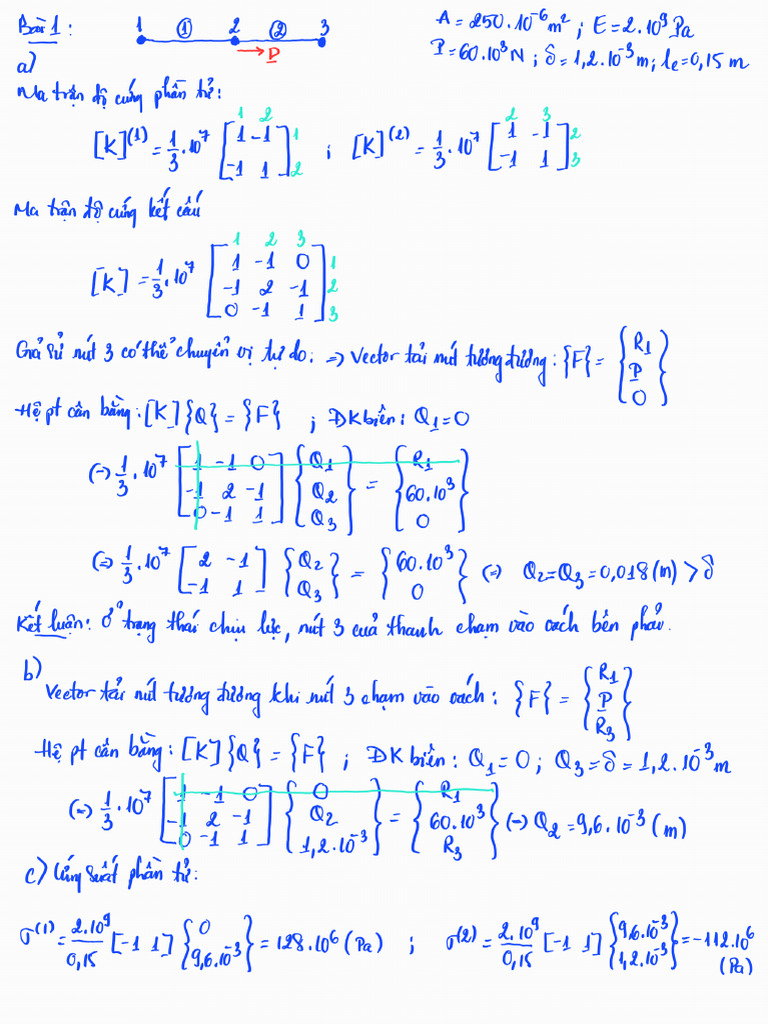 Bài 1: 1 ① 2 ② 3 A = 250.10⁻⁶ m² ; E = 2.10⁹ Pa
P P = 60.10³ N ; δ = 1,2.10⁻³ m ; lₑ = 0,15 m
a)
Ma trận độ cứng phần tử:
1 2 2 3
[K]⁽¹⁾ = 1/3 . 10⁷ [1 -1; -1 1] 1 2 ; [K]⁽²⁾ = 1/3 . 10⁷ [1 -1; -1 1] 2 3
Ma trận độ cứng kết cấu
1 2 3
[K] = 1/3 . 10⁷ [1 -1 0; -1 2 -1; 0 -1 1] 1 2 3
Giả sử nút 3 có thể chuyển vị tự do. ⇒ Vector tải nút tương đương: {F} = {R₁; P; 0}
Hệ pt cân bằng: [K]{Q} = {F} ; ĐK biên: Q₁ = 0
(⇔) 1/3 . 10⁷ [1 -1 0; -1 2 -1; 0 -1 1] {Q₁; Q₂; Q₃} = {R₁; 60.10³; 0}
(⇔) 1/3 . 10⁷ [2 -1; -1 1] {Q₂; Q₃} = {60.10³; 0} (⇔) Q₂ = Q₃ = 0,018 (m) > δ
Kết luận: Ở trạng thái chịu lực, nút 3 của thanh chạm vào vách bên phải.
b)
Vector tải nút tương đương khi nút 3 chạm vào vách: {F} = {R₁; P; R₃}
Hệ pt cân bằng: [K]{Q} = {F} ; ĐK biên: Q₁ = 0 ; Q₃ = δ = 1,2.10⁻³ m
(⇔) 1/3 . 10⁷ [1 -1 0; -1 2 -1; 0 -1 1] {0; Q₂; 1,2.10⁻³} = {R₁; 60.10³; R₃} (⇔) Q₂ = 9,6.10⁻³ (m)
c) Ứng suất phần tử:
σ⁽¹⁾ = 2.10⁹/0,15 [-1 1] {0; 9,6.10⁻³} = 128.10⁶ (Pa) ; σ⁽²⁾ = 2.10⁹/0,15 [-1 1] {9,6.10⁻³; 1,2.10⁻³} = -112.10⁶ (Pa)